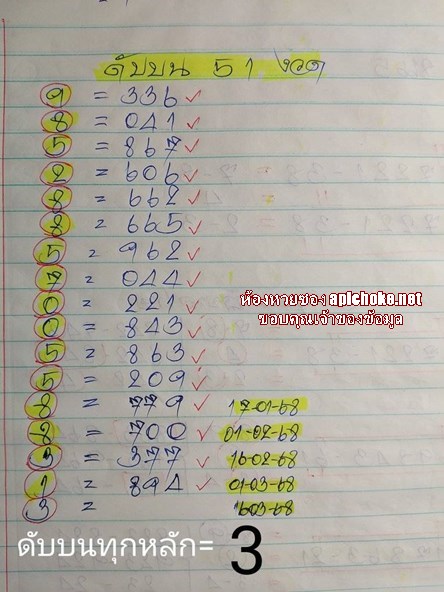 ดับบน 51 งวด
9 = 336 ✓
8 = 041 ✓
5 = 867 ✓
2 = 606 ✓
8 = 662 ✓
2 = 665 ✓
5 = 962 ✓
7 = 044 ✓
0 = 221 ✓
0 = 843 ✓
5 = 863 ✓
5 = 209 ✓
8 = 779 ✓ 17-01-68
8 = 700 ✓ 01-02-68
3 = 377 ✓ 16-02-68
1 = 894 ✓ 01-03-68
3 = 1603-68
ห้องหวยซอง apichoke.net
ขอบคุณเจ้าของข้อมูล
ดับบนทุกหลัก= 3